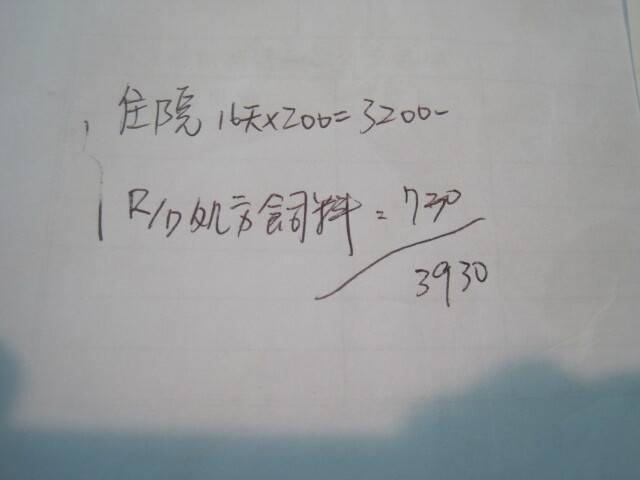 住院 16天×200=3200-
R/D 处方飼料 = 730
3930